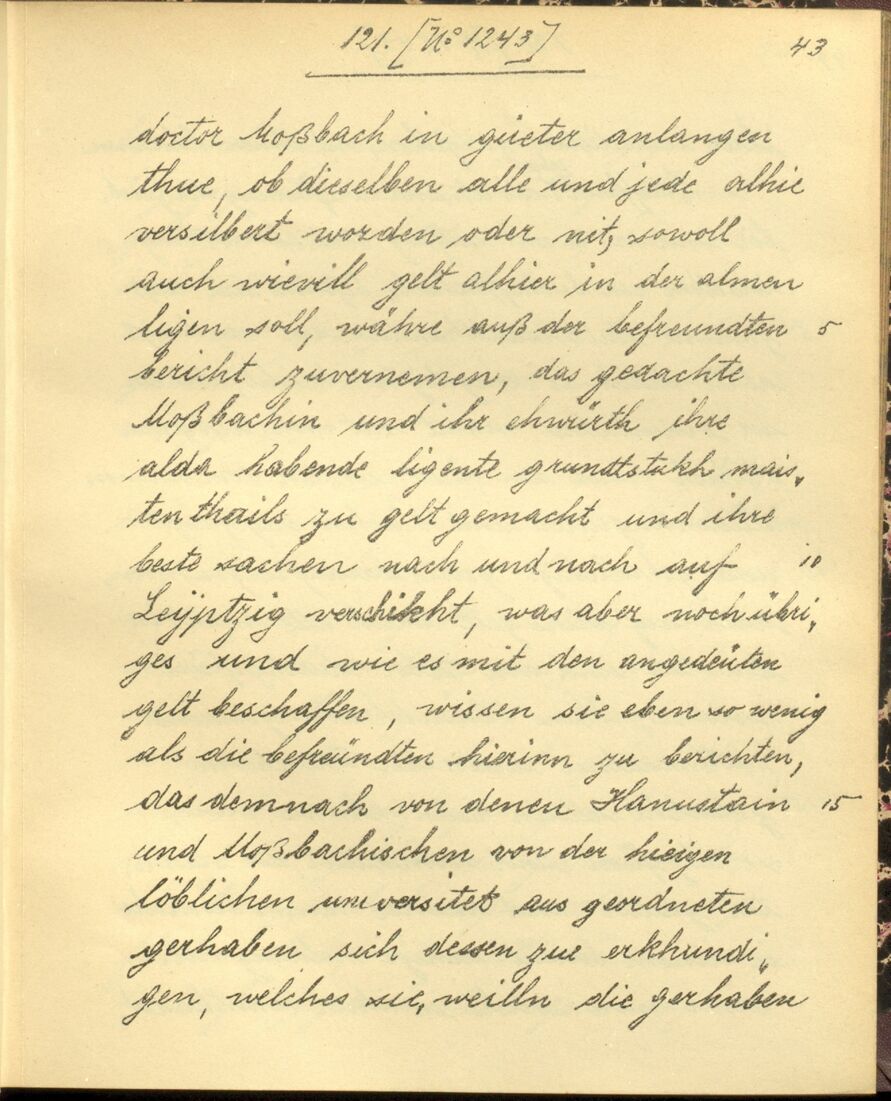 121. [No 1243]
43
doctor Moßbach in güeter anlangen
thue, ob dieselben alle und jede alhie
versilbert worden oder nit, sowoll
auch wievill gelt alhier in der almen
ligen soll, währe auß der befreundten 5
bericht zuvernemen, das gedachte
Moßbachin und ihr ehwürth ihre
alda habende ligente grundtstukh mais„
ten thails zu gelt gemacht und ihre
beste sachen nach und nach auf 10
Leÿptzig verschikht, was aber noch übri„
ges und wie es mit den angedeüten
gelt beschaffen, wissen sie eben so wenig
als die befreündten hierinn zu berichten,
das demnach von denen Hanustain 15
und Moßbachischen von der hieigen
löblichen universitet aus geordneten
gerhaben sich dessen zue erkhundi„
gen, welches sie, weilln die gerhaben